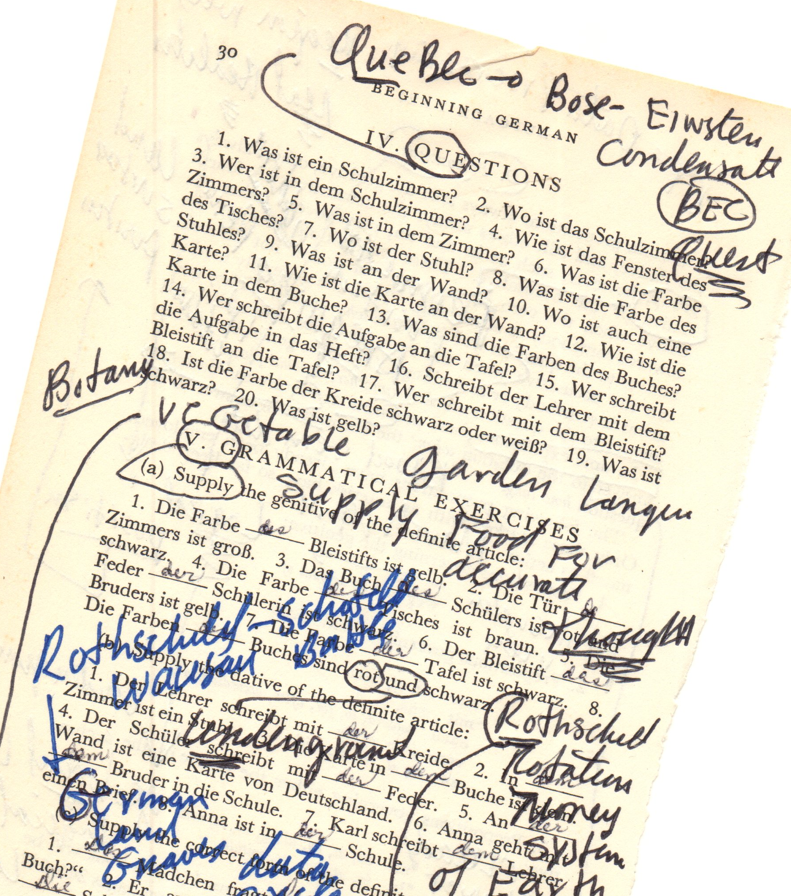 30
QueBec → Bose- Einsten
BEGINNING GERMAN
Condensate
IV. QUESTIONS
BEC
Quest
1. Was ist ein Schulzimmer? 2. Wo ist das Schulzimmer?
3. Wer ist in dem Schulzimmer? 4. Wie ist das Fenster des
Zimmers? 5. Was ist in dem Zimmer? 6. Was ist die Farbe
des Tisches? 7. Wo ist der Stuhl? 8. Was ist die Farbe des
Stuhles? 9. Was ist an der Wand? 10. Wo ist auch eine
Karte? 11. Wie ist die Karte an der Wand? 12. Wie ist die
Karte in dem Buche? 13. Was sind die Farben des Buches?
14. Wer schreibt die Aufgabe an die Tafel? 15. Wer schreibt
die Aufgabe in das Heft? 16. Schreibt der Lehrer mit dem
Bleistift an die Tafel? 17. Wer schreibt mit dem Bleistift?
18. Ist die Farbe der Kreide schwarz oder weiß? 19. Was ist
schwarz? 20. Was ist gelb?
Botany
vegetable garden
V. GRAMMATICAL EXERCISES
(a) Supply the genitive of the definite article:
Supply Food For
accurate
Thought
1. Die Farbe des Bleistifts ist gelb. 2. Die Tür
Zimmers ist groß. 3. Das Buch des Schülers ist rot und
schwarz. 4. Die Farbe Tisches ist braun.
Feder der Schülerin ist schwarz. 6. Der Bleistift das
Bruders ist gelb. 7. Die Farbe der Tafel ist schwarz. 8.
Die Farben Buches sind rot und schwarz.
Rothschild-Schofield
Wausau Battle
(b) Supply the dative of the definite article:
1. Der Lehrer schreibt mit der Kreide. 2. In dem
Zimmer ist ein Stuhl. 3. Die Karte in dem Buche ist
4. Der Schüler schreibt mit der Feder. 5. An der
Wand ist eine Karte von Deutschland. 6. Anna geht
dem Bruder in die Schule. 7. Karl schreibt dem Lehrer
einen Brief. Anna ist in der Schule.
Rothschild
Money
System
of Earth
German
Land
Graves data
(c) Supply the correct form of the definite
1. das Mädchen
Buch?“ 2. Er
Die